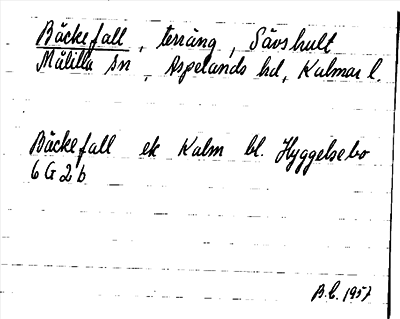 Bäckefall, terräng, Sävshult
Målilla sn, Aspelands hd, Kalmar l.
Bäckefall ek Kalm bl. Hyggelsebo
6 G 2 b
B.L. 1957